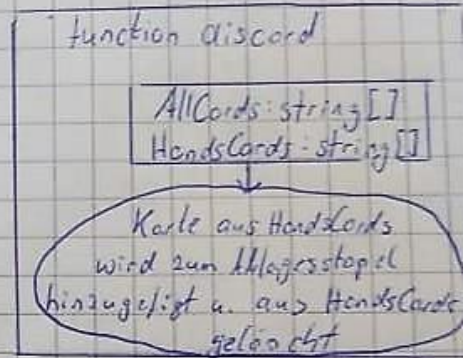 function discard
AllCards: string[]
HandsCards: string[]
Karte aus HandsCards
wird zum Ablagesstapel
hinzugefügt u. aus HandsCards
gelöscht